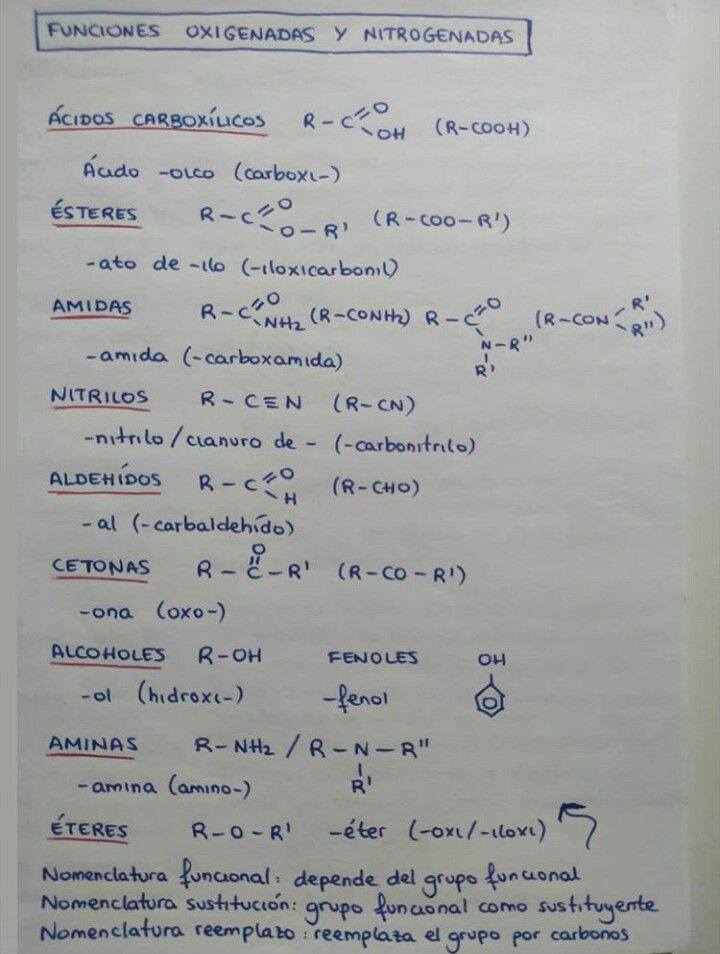 FUNCIONES OXIGENADAS Y NITROGENADAS
ÁCIDOS CARBOXÍLICOS R-C=O OH (R-COOH)
Ácido -oico (carboxi-)
ÉSTERES R-C=O O-R' (R-COO-R')
-ato de -ilo (-iloxicarbonil)
AMIDAS R-C=O NH2 (R-CONH2) R-C=O N-R" R' (R-CON R' R")
-amida (-carboxamida)
NITRILOS R-C≡N (R-CN)
-nitrilo/cianuro de - (-carbonitrilo)
ALDEHÍDOS R-C=O H (R-CHO)
-al (-carbaldehído)
CETONAS R-C=O-R' (R-CO-R')
-ona (oxo-)
ALCOHOLES R-OH FENOLES OH
-ol (hidroxi-) -fenol
AMINAS R-NH2 / R-N-R" R'
-amina (amino-)
ÉTERES R-O-R' -éter (-oxi/-iloxi)
Nomenclatura funcional: depende del grupo funcional
Nomenclatura sustitución: grupo funcional como sustituyente
Nomenclatura reemplazo: reemplaza el grupo por carbonos